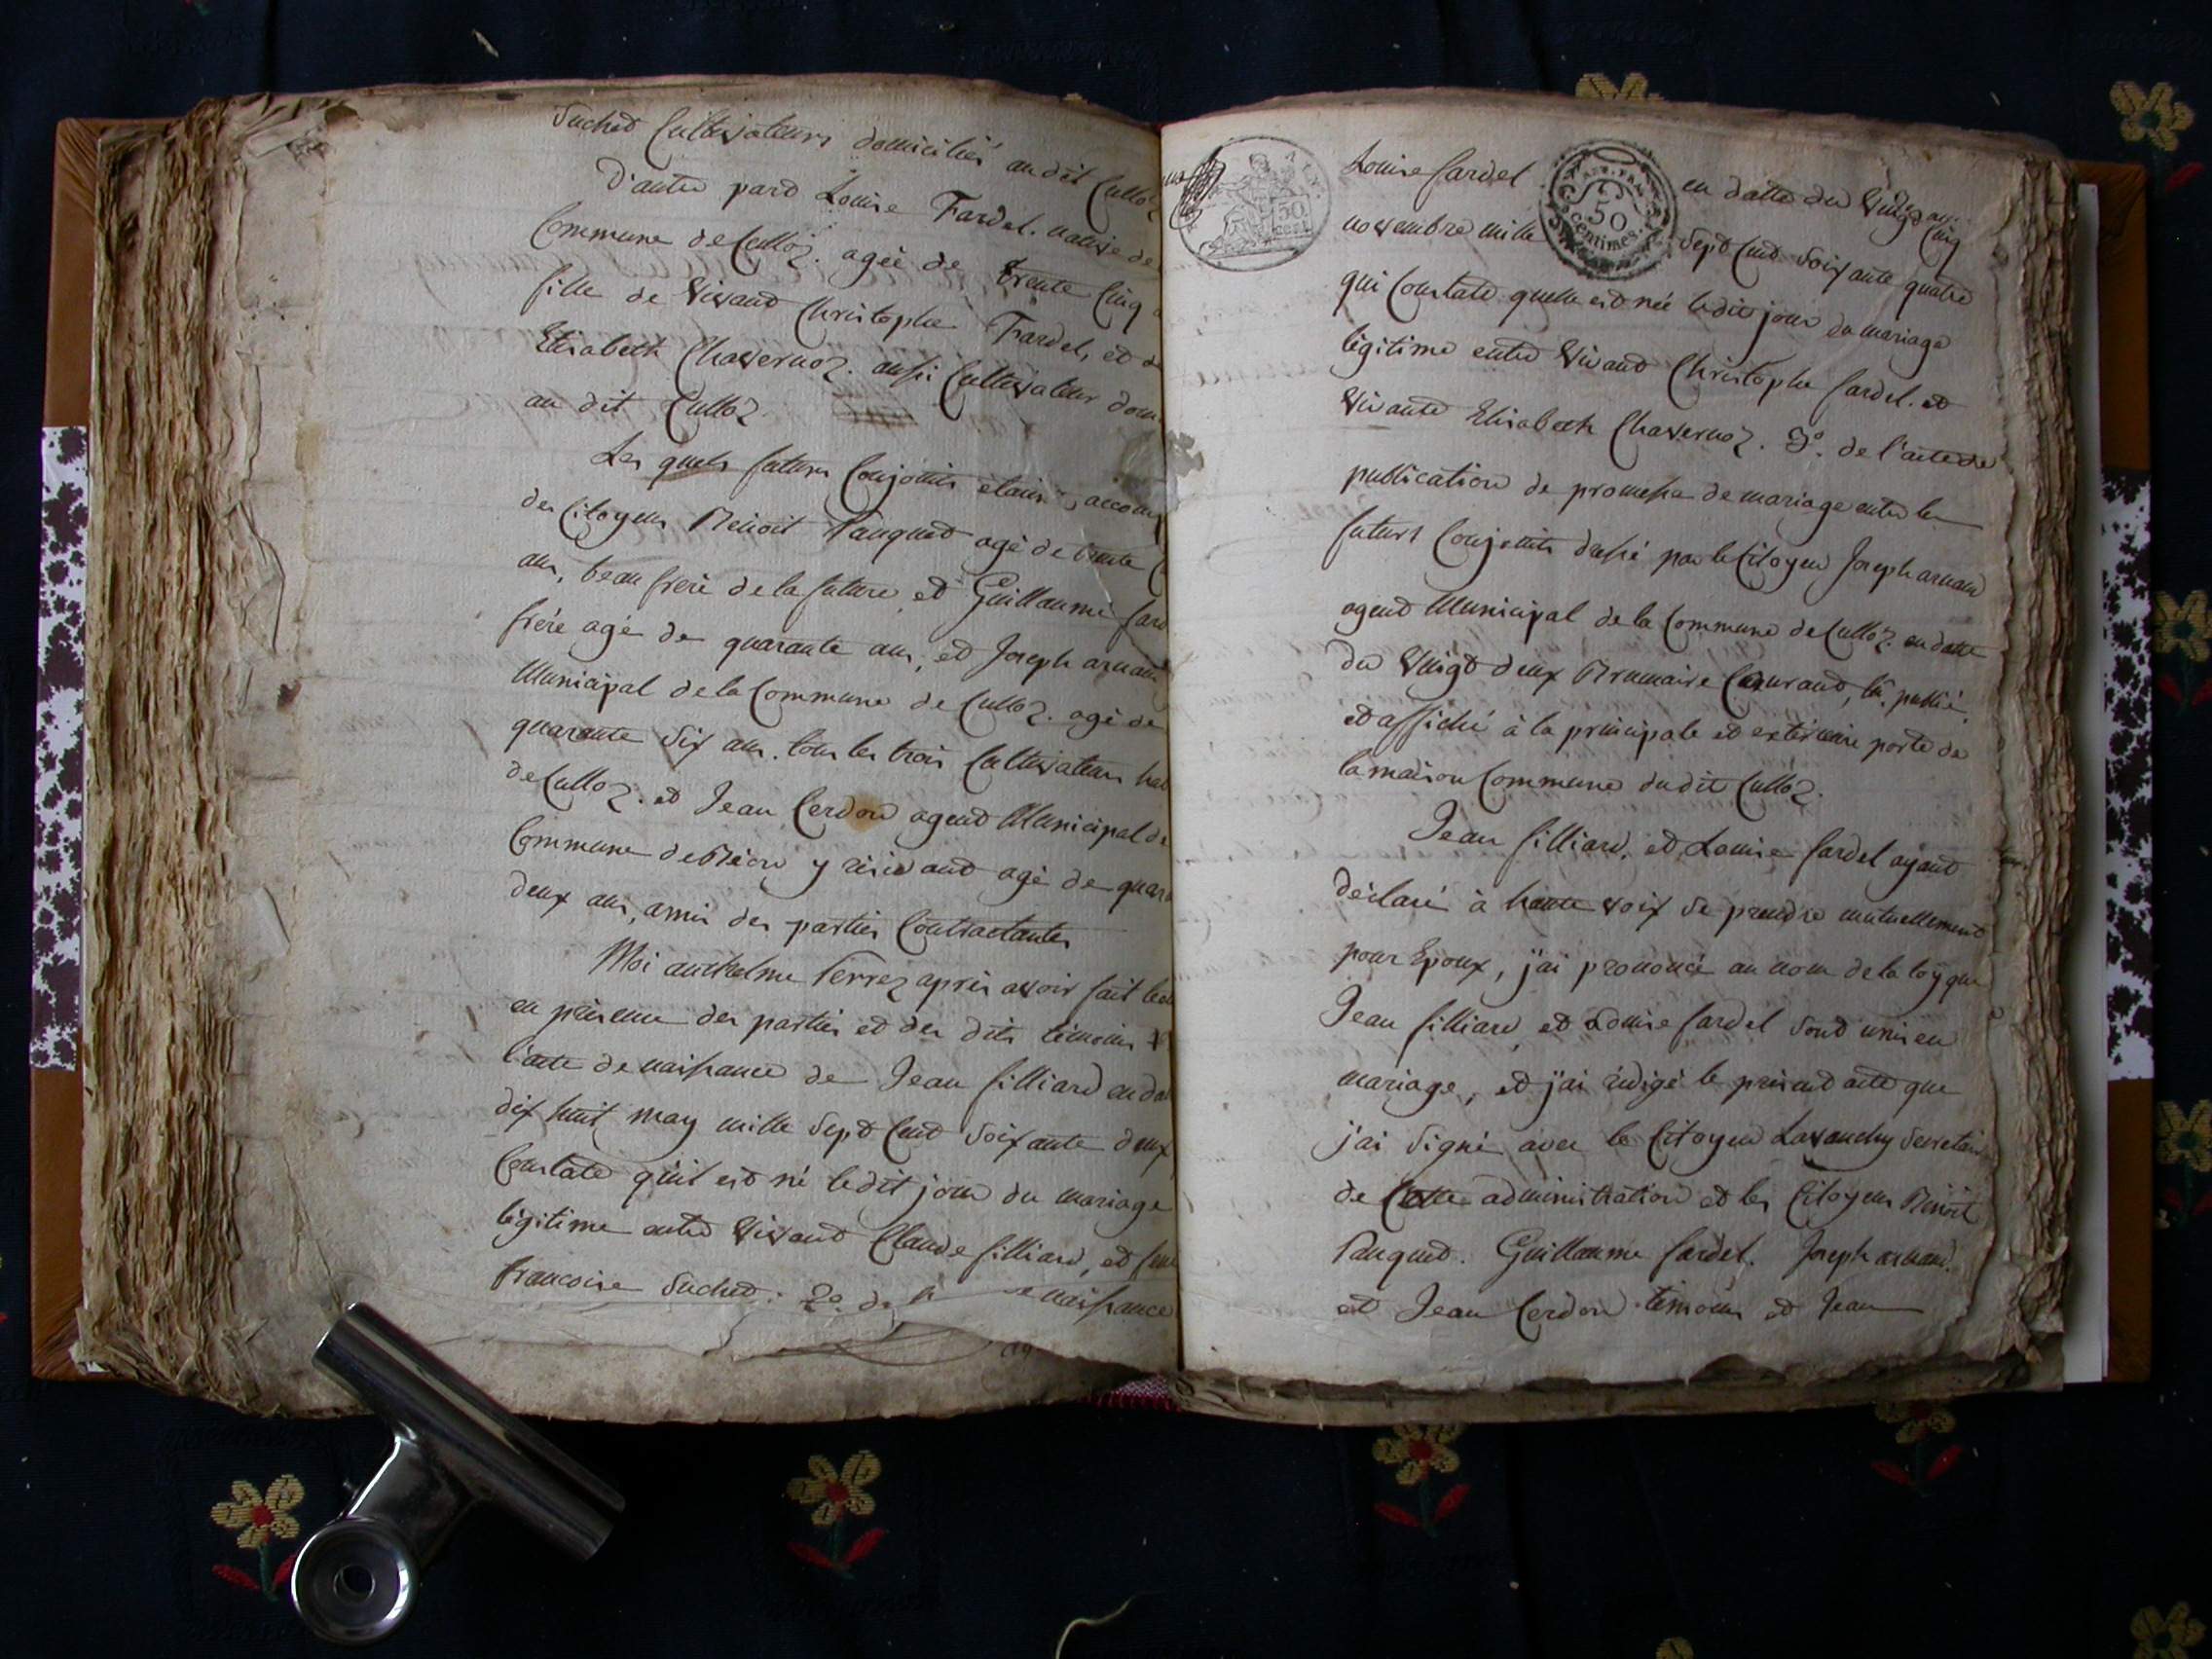 Suchet Cultivateurs domiciliés audit Culloz
D'autre part Louise Fardel. native de
Commune de Culloz. agée de trente Cinq
fille de Vivant Christophe Fardel, et d
Elisabeth Chavernoz. aussi Cultivateur dom
au dit Culloz
Les quels futurs Conjoints étaient accom
des Citoyens Benoit Pauquet agé de trente
ans, beau frere de la future, et Guillaume fard
frére agé de quarante ans, et Joseph arnaud
Municipal de la Commune de Culloz. agé de
quarante Six ans. tous les trois Cultivateurs hab
de Culloz. et Jean Cerdon agent Municipal de
Commune de Béon y résidant agé de quara
deux ans, amis des parties Contractantes
Moi anthelme Ferrez aprés avoir fait lec
en présence des parties et des dits témoins
l'acte de naissance de Jean filliard en da
dix huit may mille Sept Cent Soixante deux
Constate qu'il est né ledit jour du mariage
légitime entre Vivant Claude filliard, et feue
francoise Suchet: 2º. de naissance
Louise fardel en datte du Vingt Cinq
REP. FRA.
50
Centimes.
50
cent
novembre mille Sept Cent Soixante quatre
qui Constate quelle est née ledit jour du mariage
légitime entre Vivant Christophe fardel. et
Vivante Elisabeth Chavernoz. 3º. de l'acte de
publication de promesse de mariage entre les
futurs Conjoints dressé par le Citoyen Joseph arnaud
agent Municipal de la Commune de Culloz. en datte
du Vingt deux Brumaire Courant, lû, publié,
et affiché à la principale et exterieure porte de
la maison Commune dudit Culloz.
Jean filliard, et Louise fardel ayant
déclaré à haute voix se prendre mutuellement
pour Epoux, j'ai prononcé au nom de la loy que
Jean filliard, et Louise fardel sont unis en
mariage, et j'ai rédigé le présent acte que
j'ai Signé avec le Citoyen Lavanchy Secretaire
de Cette administration et les Citoyens Benoit
Pauquet. Guillaume fardel. Joseph arnaud.
et Jean Cerdon témoins et Jean